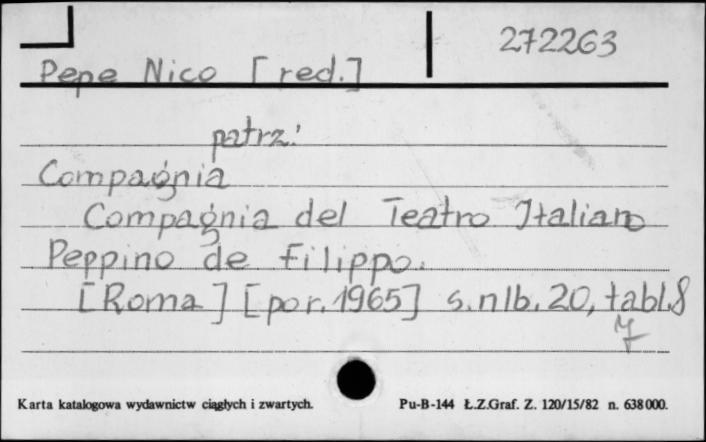 272263
Pepe Nico [red.]
patrz:
Compagnia
Compagnia del Teatro Italiano
Peppino de Filippo.
[Roma] [por. 1965] s.nlb. 20, tabl. 8
Karta katalogowa wydawnictw ciągłych i zwartych. Pu-B-144 Ł.Z.Graf. Z. 120/15/82 n. 638000.